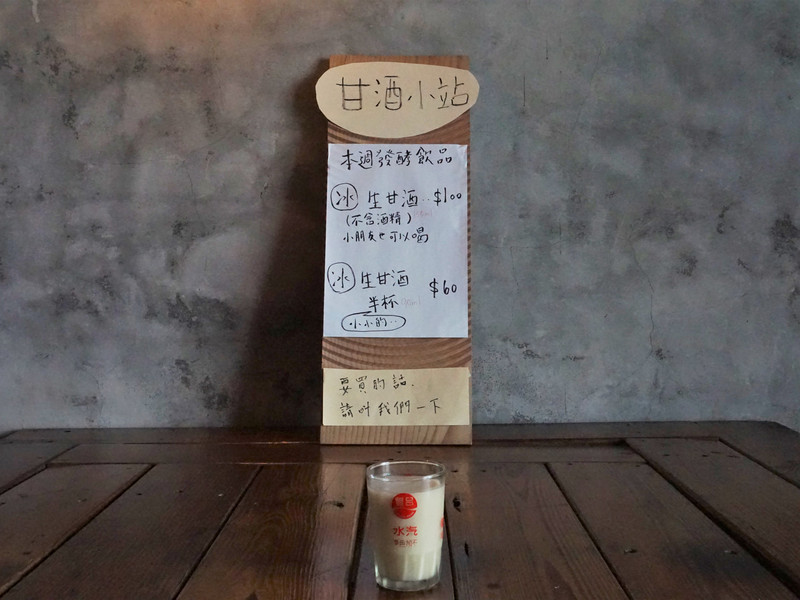 甘酒小站
本週發酵飲品
冰 生甘酒..$100
(不含酒精)
小朋友也可以喝
冰 生甘酒 $60
半杯
小小的..
要買的話.
請叫我們一下
水汽